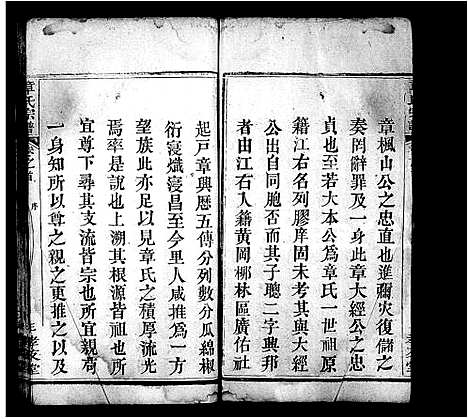 章楓山公之忠直也進彌灾復儲之
奏罔辭罪及一身此章大經公之忠
貞也至若大本公為章氏一世祖原
籍江右名列膠庠固未考其與大經
公出自同胞否而其子聰二字興邦
者由江右入籍黃岡柳林區廣佑社
起戸章興歷五傳分列數分瓜綿椒
衍寖熾寖昌至今里人咸推為一方
望族此亦足以見章氏之積厚流光
焉率是以上溯其根源皆祖也所
宜尊下尋其支流皆宗也所宜親苟
一身知所以尊之親之更推之以及
章氏宗譜
卷之首
序
孝友堂